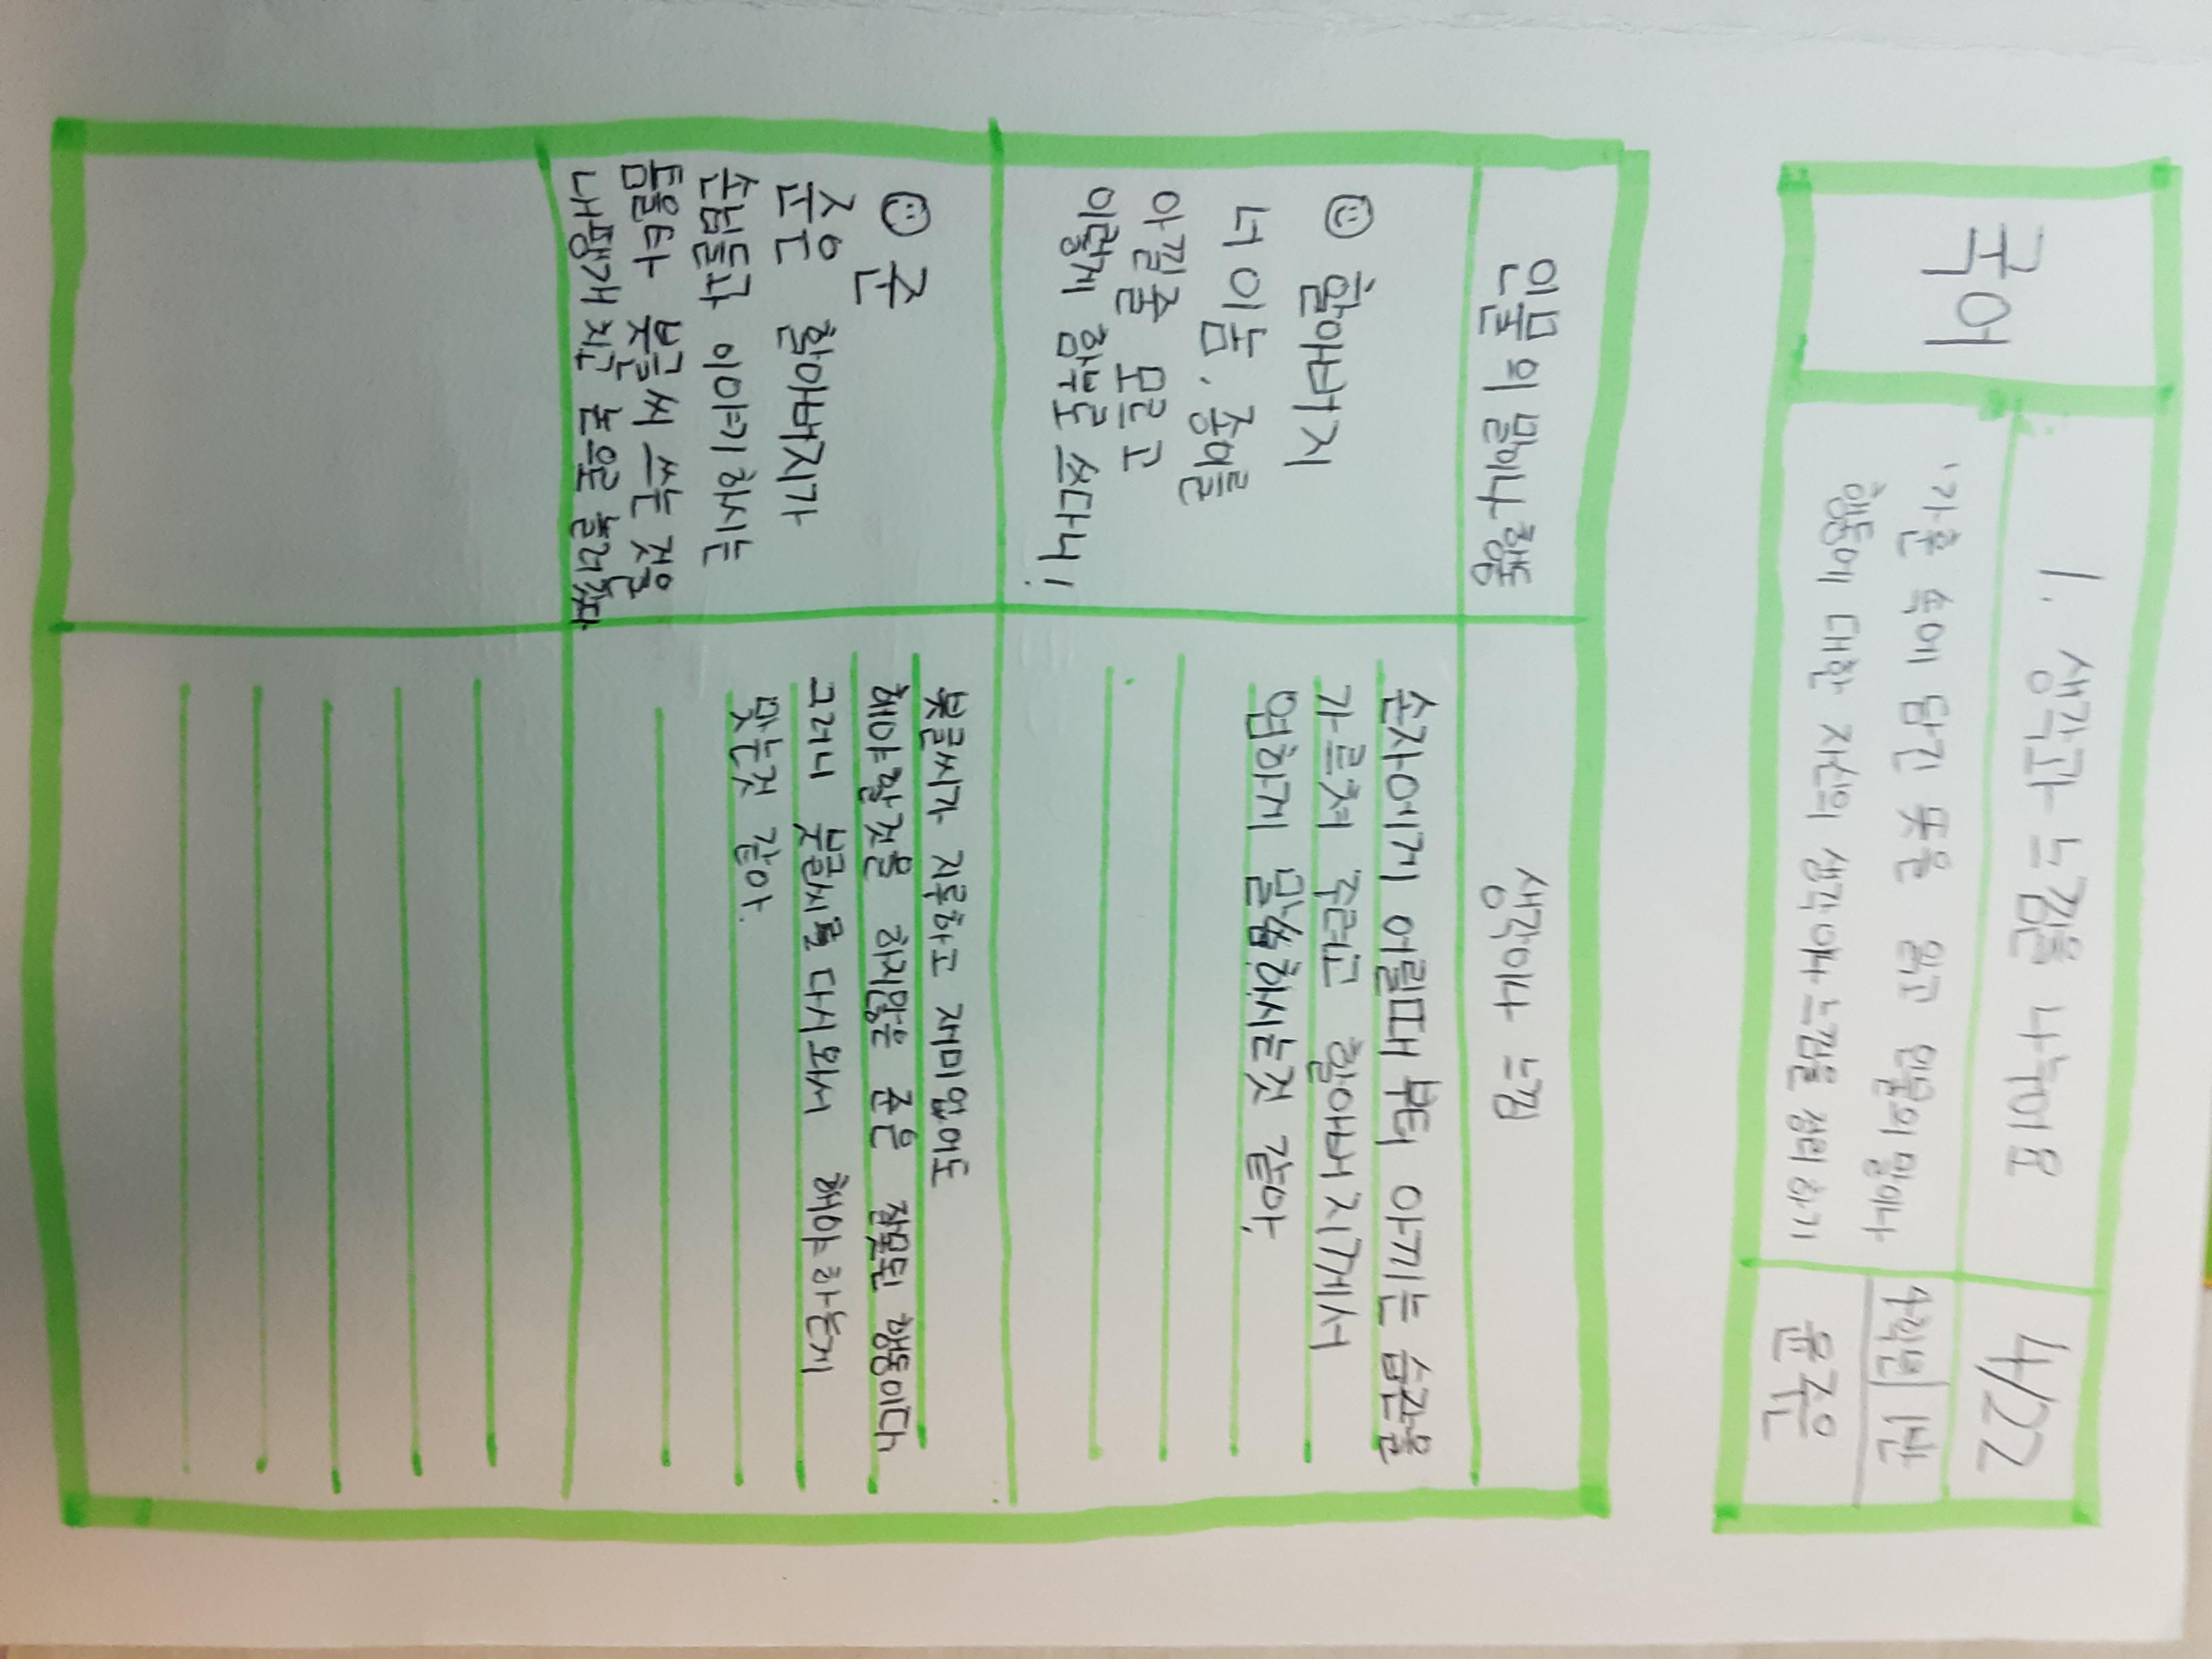 국어
1. 생각과 느낌을 나누어요
'가훈 속에 담긴 뜻을 읽고 인물의 말이나
행동에 대한 자신의 생각이나 느낌을 정리하기
4/22
4학년 1반
윤주은
인물의 말이나 행동
생각이나 느낌
할아버지
너 이놈. 종이를
아낄줄 모르고
이렇게 함부로 쓰다니!
손자에게 어릴때 부터 아끼는 습관을
가르쳐 주려고 할아버지께서
엄하게 말씀하시는것 같아,
준
준은 할아버지가
손님들과 이야기 하시는
틈을타 붓글씨 쓰는 것을
내팽개치고 논으로 놀러갔다
붓글씨가 지루하고 재미없어도
해야할것을 하지않은 준은 잘못된 행동이다
그러니 붓글씨를 다시 와서 해야 하는게
맞는것 같아.